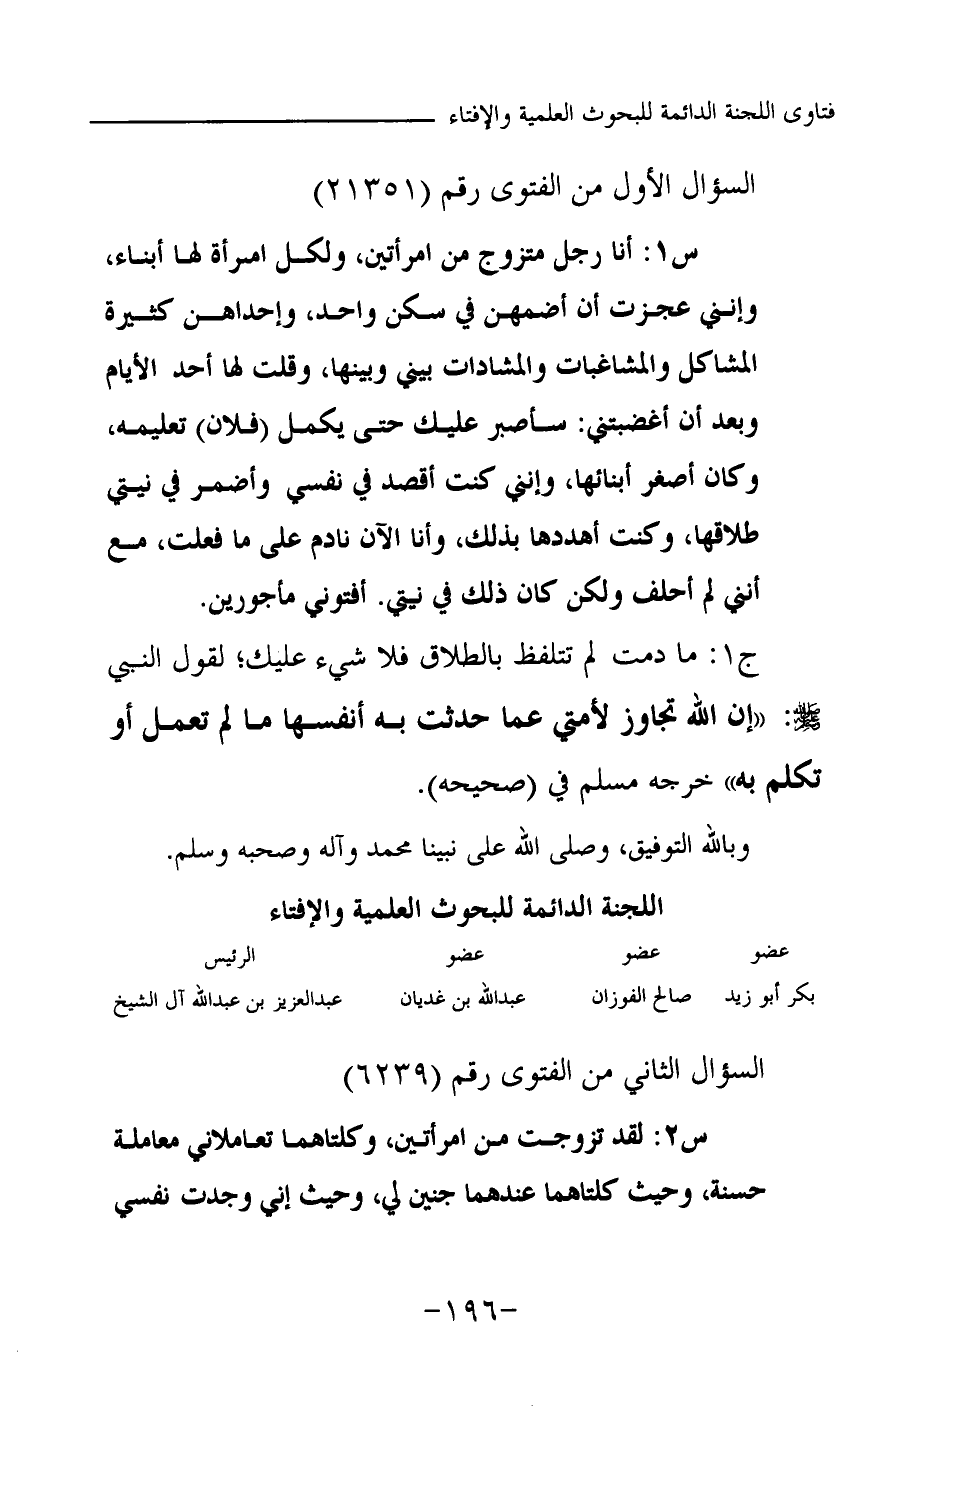 فتاوى اللجنة الدائمة للبحوث العلمية والإفتاء
السؤال الأول من الفتوى رقم (٢١٣٥١)
س١: أنا رجل متزوج من امرأتين، ولكل امرأة لها أبناء،
وإنني عجزت أن أضمهن في سكن واحد، وإحداهن كثيرة
المشاكل والمشاغبات والمشادات بيني وبينها، وقلت لها أحد الأيام
وبعد أن أغضبتني: سأصبر عليك حتى يكمل (فلان) تعليمه،
وكان أصغر أبنائها، وإنني كنت أقصد في نفسي وأضمر في نيتي
طلاقها، وكنت أهددها بذلك، وأنا الآن نادم على ما فعلت، مع
أنني لم أحلف ولكن كان ذلك في نيتي. أفتوني مأجورين.
ج١: ما دمت لم تتلفظ بالطلاق فلا شيء عليك؛ لقول النبي
ﷺ: «إن الله تجاوز لأمتي عما حدثت به أنفسها ما لم تعمل أو
تكلم به» خرجه مسلم في (صحيحه).
وبالله التوفيق، وصلى الله على نبينا محمد وآله وصحبه وسلم.
اللجنة الدائمة للبحوث العلمية والإفتاء
عضو عضو عضو الرئيس
بكر أبو زيد صالح الفوزان عبدالله بن غديان عبدالعزيز بن عبدالله آل الشيخ
السؤال الثاني من الفتوى رقم (٦٢٣٩)
س٢: لقد تزوجت من امرأتين، وكلتاهما تعاملاني معاملة
حسنة، وحيث كلتاهما عندهما جنين لي، وحيث إني وجدت نفسي
-١٩٦-